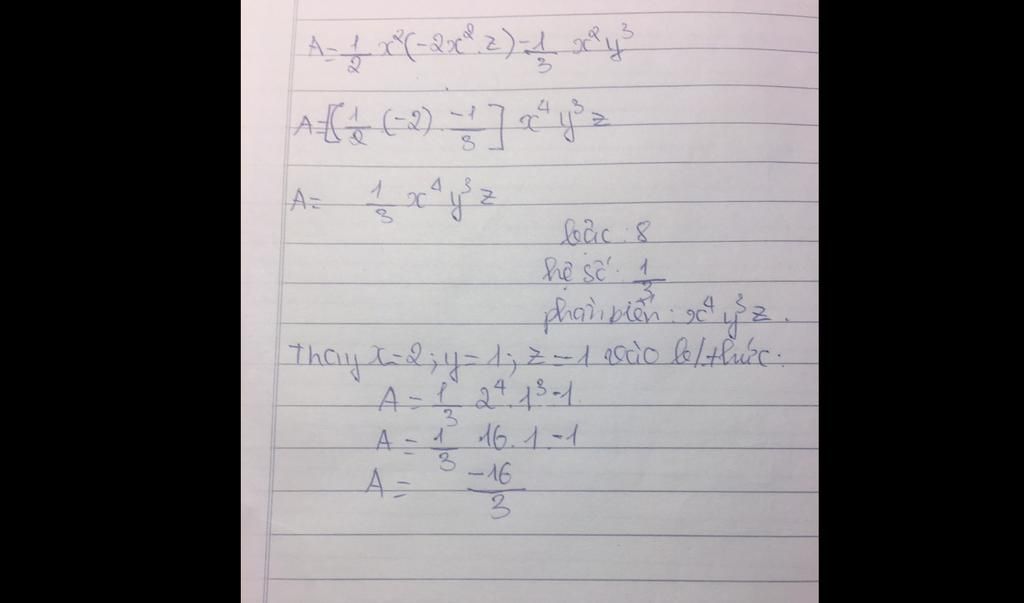 A = 1/2 x²(-2x².z) -1/3 x²y³
A = [1/2 (-2) . -1/3] x⁴y³z
A = 1/3 x⁴y³z
bậc : 8
hệ số : 1/3
phần biến : x⁴y³z .
thay x=2 ; y=1 ; z=-1 vào b/thức :
A = 1/3 2⁴.1³-1
A = 1/3 16.1.-1
A = -16/3